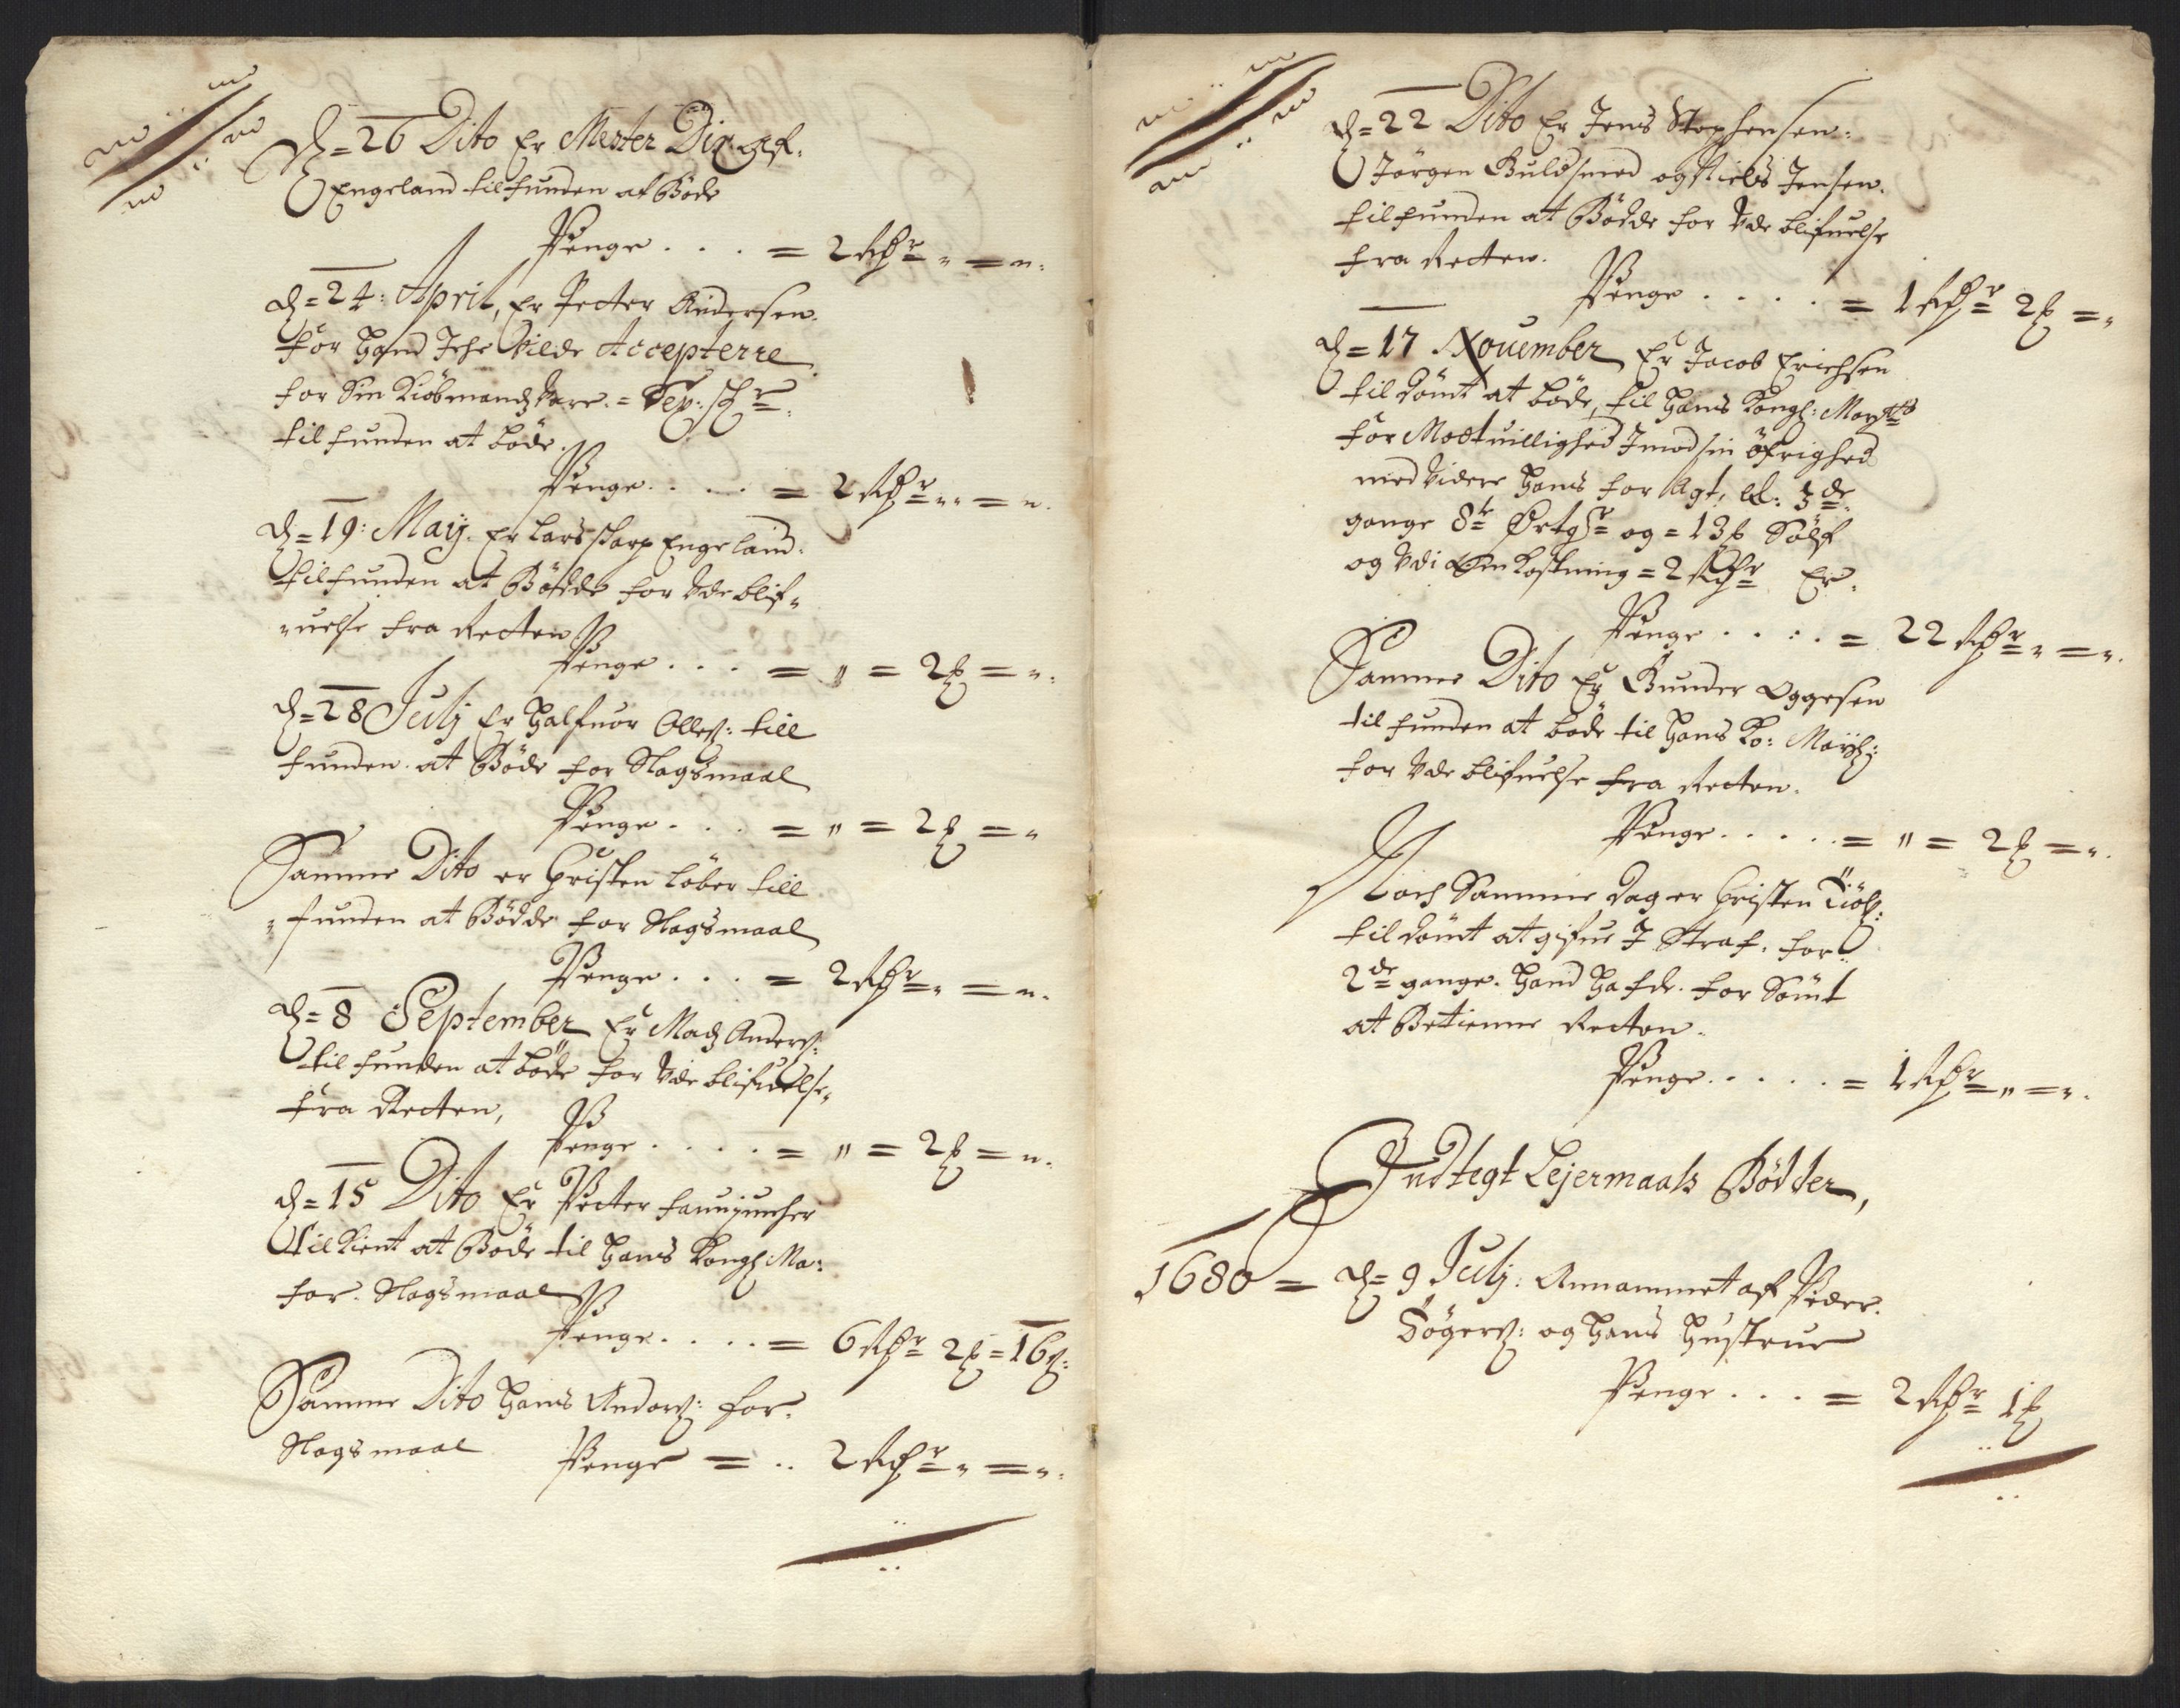 D = 26 Dito Er Mester Dir. af.
Engeland tilfunden at Böde
Penge . . . = 2 Rdr = " = ".
D = 24: April, Er Petter Andersen.
for Hand Iche Vilde Accepterre
for Sin Kiöbmandz Vare.
tilfunden at böde.
Penge . . . . = 2 Rdr = " = ".
D = 19: Maij. Er Lars skarp Engeland.
tilfunden at Bödde for Vde blif,,
,,uelse fra Retten
Penge . . . = " = 2 ß = ".
D = 28 Julij Er Halfuor Olles: till
funden at Böde for Slagsmaal
Penge . . . = " = 2 ß = "
Samme Dito er Christen Löber till
,,funden at Bödde for Slagsmaal
Penge . . . = 2 Rdr = " = ".
D = 8 September Er Madz Anders:
tilfunden at böde for Vde blifuelse,
fra Retten,
Penge . . . . = " = 2 ß = ".
D = 15 Dito Er Petter
tilkient at Böde til Hans Kongl: Ma:
for Slagsmaal
Penge . . . . = 6 Rdr 2 ß = 16 s:
Samme Dito Hans Anders: for.
Slagsmaal Penge = .. 2 Rdr = " = ".
D = 22 Dito Er Jens Stephensen.
Jörgen Guldsmed og Niels Jensen.
tilfunden at Bödde for Vde blifuelse
fra Retten.
Penge . . . . = 1 Rdr 2 ß = "
D = 17 Nouember Er Jacob Erichsen
tildömt at böde, til Hans Kongl: Mayts
for Modtuillighed Imod sin öfrighed
med Videre Hans for Agt, El: 3de
gange 8te Ørtgr og = 13 ß Sölf
og Vdi Omkostning = 2 Rdr Er.
Penge . . : . = 22 Rdr = " = ".
Samme Dito Er Gunder Aggesen
tilfunden at böde til Hans Ko: Mayts:
for Vde blifuelse fra Retten.
Penge . . . . . = " = 2 ß = ".
Noch Samme dag er Christen
tildömt at gifue I Straf. for
2de gange. Hand Hafde. for Sömt
at Betienne Retten.
Penge . . . . . = 1 Rdr = " = ".
Indtegt Lejermaals Bödder,
1680 = D = 9 Julij: Annammet af Peder.
og Hans Hustrue
Penge . . . = 2 Rdr 1 ß